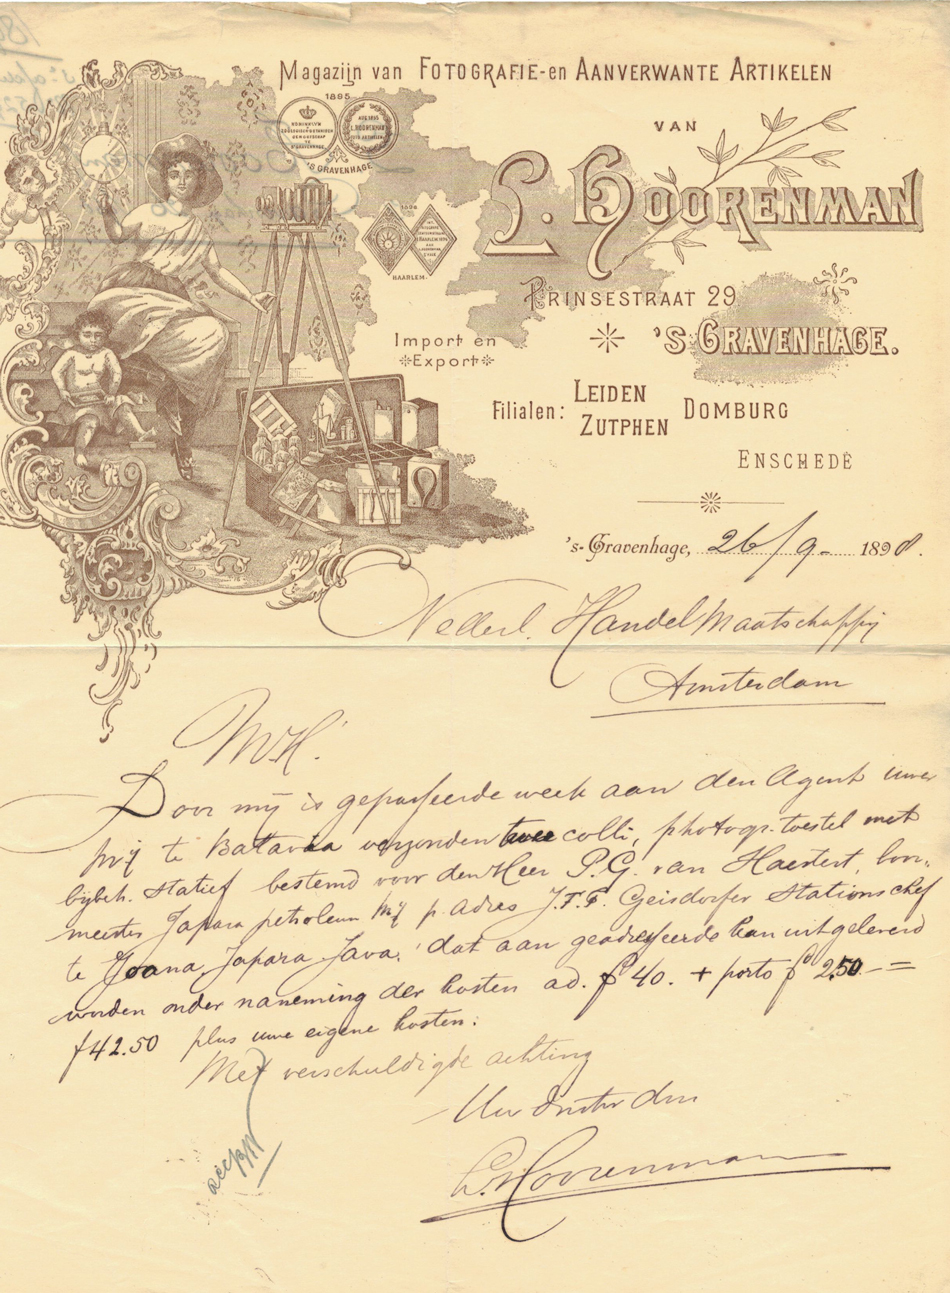 Magazijn van FOTOGRAFIE- en AANVERWANTE ARTIKELEN
VAN
L. HOORENMAN
1895
'S GRAVENHAGE
1896
HAARLEM.
PRINSESTRAAT 29
'S GRAVENHAGE.
Import en
Export
Filialen: LEIDEN DOMBURG
ZUTPHEN
ENSCHEDÉ
's-Gravenhage, 26/9- 1898.
Nederl. Handel Maatschappij
Amsterdam
M.H.
Door mij is gepasseerde week aan den Agent uwer
Mij te Batavia verzonden twee colli, photogr. toestel met
bijbeh. statief bestemd voor den Heer P.G. van Haeftert, boor-
meester Japara petroleum Mij p. adres J.F.F. Geisdorfer Stationschef
te Joana, Japara Java. dat aan geadresseerde kan uitgeleverd
worden onder naneming der kosten ad. f 40. + porto f 2.50 =
f 42.50 plus uwe eigene kosten.
Met verschuldigde achting
Uw dienstw. dnr
L. Hoorenman